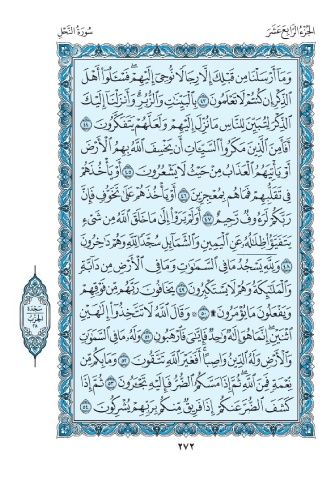 الجزء الرابع عشر
سورة النحل
وَمَآ أَرْسَلْنَا مِن قَبْلِكَ إِلَّا رِجَالًا نُّوحِىٓ إِلَيْهِمْ ۚ فَسْـَٔلُوٓا۟ أَهْلَ
ٱلذِّكْرِ إِن كُنتُمْ لَا تَعْلَمُونَ ٤٣ بِٱلْبَيِّنَـٰتِ وَٱلزُّبُرِ ۗ وَأَنزَلْنَآ إِلَيْكَ
ٱلذِّكْرَ لِتُبَيِّنَ لِلنَّاسِ مَا نُزِّلَ إِلَيْهِمْ وَلَعَلَّهُمْ يَتَفَكَّرُونَ ٤٤
أَفَأَمِنَ ٱلَّذِينَ مَكَرُوا۟ ٱلسَّيِّـَٔاتِ أَن يَخْسِفَ ٱللَّهُ بِهِمُ ٱلْأَرْضَ
أَوْ يَأْتِيَهُمُ ٱلْعَذَابُ مِنْ حَيْثُ لَا يَشْعُرُونَ ٤٥ أَوْ يَأْخُذَهُمْ
فِى تَقَلُّبِهِمْ فَمَا هُم بِمُعْجِزِينَ ٤٦ أَوْ يَأْخُذَهُمْ عَلَىٰ تَخَوُّفٍ فَإِنَّ
رَبَّكُمْ لَرَءُوفٌ رَّحِيمٌ ٤٧ أَوَلَمْ يَرَوْا۟ إِلَىٰ مَا خَلَقَ ٱللَّهُ مِن شَىْءٍ
يَتَفَيَّؤُا۟ ظِلَـٰلُهُۥ عَنِ ٱلْيَمِينِ وَٱلشَّمَآئِلِ سُجَّدًا لِّلَّهِ وَهُمْ دَٰخِرُونَ
٤٨ وَلِلَّهِ يَسْجُدُ مَا فِى ٱلسَّمَـٰوَٰتِ وَمَا فِى ٱلْأَرْضِ مِن دَآبَّةٍ
وَٱلْمَلَـٰٓئِكَةُ وَهُمْ لَا يَسْتَكْبِرُونَ ٤٩ يَخَافُونَ رَبَّهُم مِّن فَوْقِهِمْ
وَيَفْعَلُونَ مَا يُؤْمَرُونَ ۩ ٥٠ ۞ وَقَالَ ٱللَّهُ لَا تَتَّخِذُوٓا۟ إِلَـٰهَيْنِ
ٱثْنَيْنِ ۖ إِنَّمَا هُوَ إِلَـٰهٌ وَٰحِدٌ ۖ فَإِيَّـٰىَ فَٱرْهَبُونِ ٥١ وَلَهُۥ مَا فِى ٱلسَّمَـٰوَٰتِ
وَٱلْأَرْضِ وَلَهُ ٱلدِّينُ وَاصِبًا ۚ أَفَغَيْرَ ٱللَّهِ تَتَّقُونَ ٥٢ وَمَا بِكُم مِّن
نِّعْمَةٍ فَمِنَ ٱللَّهِ ۖ ثُمَّ إِذَا مَسَّكُمُ ٱلضُّرُّ فَإِلَيْهِ تَجْـَٔرُونَ ٥٣ ثُمَّ إِذَا
كَشَفَ ٱلضُّرَّ عَنكُمْ إِذَا فَرِيقٌ مِّنكُم بِرَبِّهِمْ يُشْرِكُونَ ٥٤
سجدة
٢٧٢